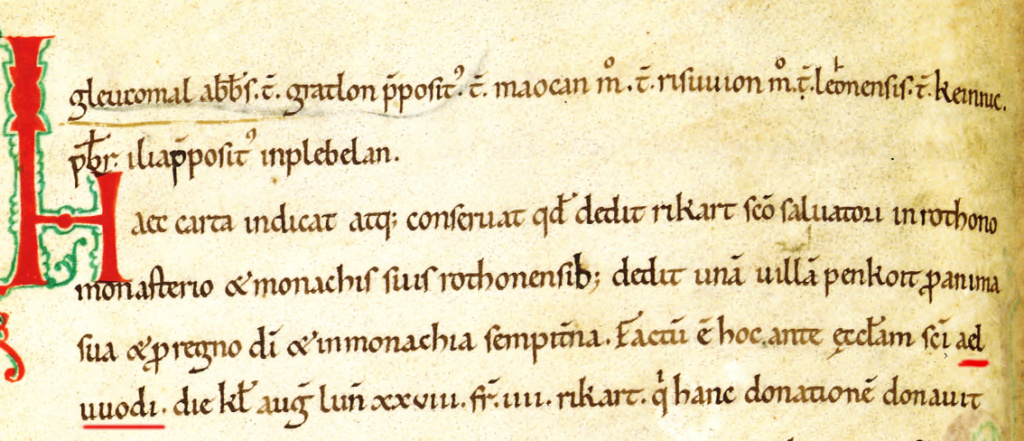 gleucomal abb̄s. t̄. gratlon p̄posit᾿. t̄. maocan m̊. t̄. risuuion m̊. t̄. leōnensis. t̄. keinnuc.
pb̄r. ilia p̄posit᾿ in plebelan.
Haec carta indicat atq; conseruat qđ dedit rikart sc̄o saluatori in rothono
monasterio & monachis suis rothonensib; dedit unā uillā penkoit ꝓ anima
sua & ꝓ regno dī & in monachia sempit̄na. Factū ē hoc. ante ęccłam sc̄i ad
uuodi. die kł aug̅ lun̄ xxviii. fr̄. iiii. rikart. qi hanc donationē donauit